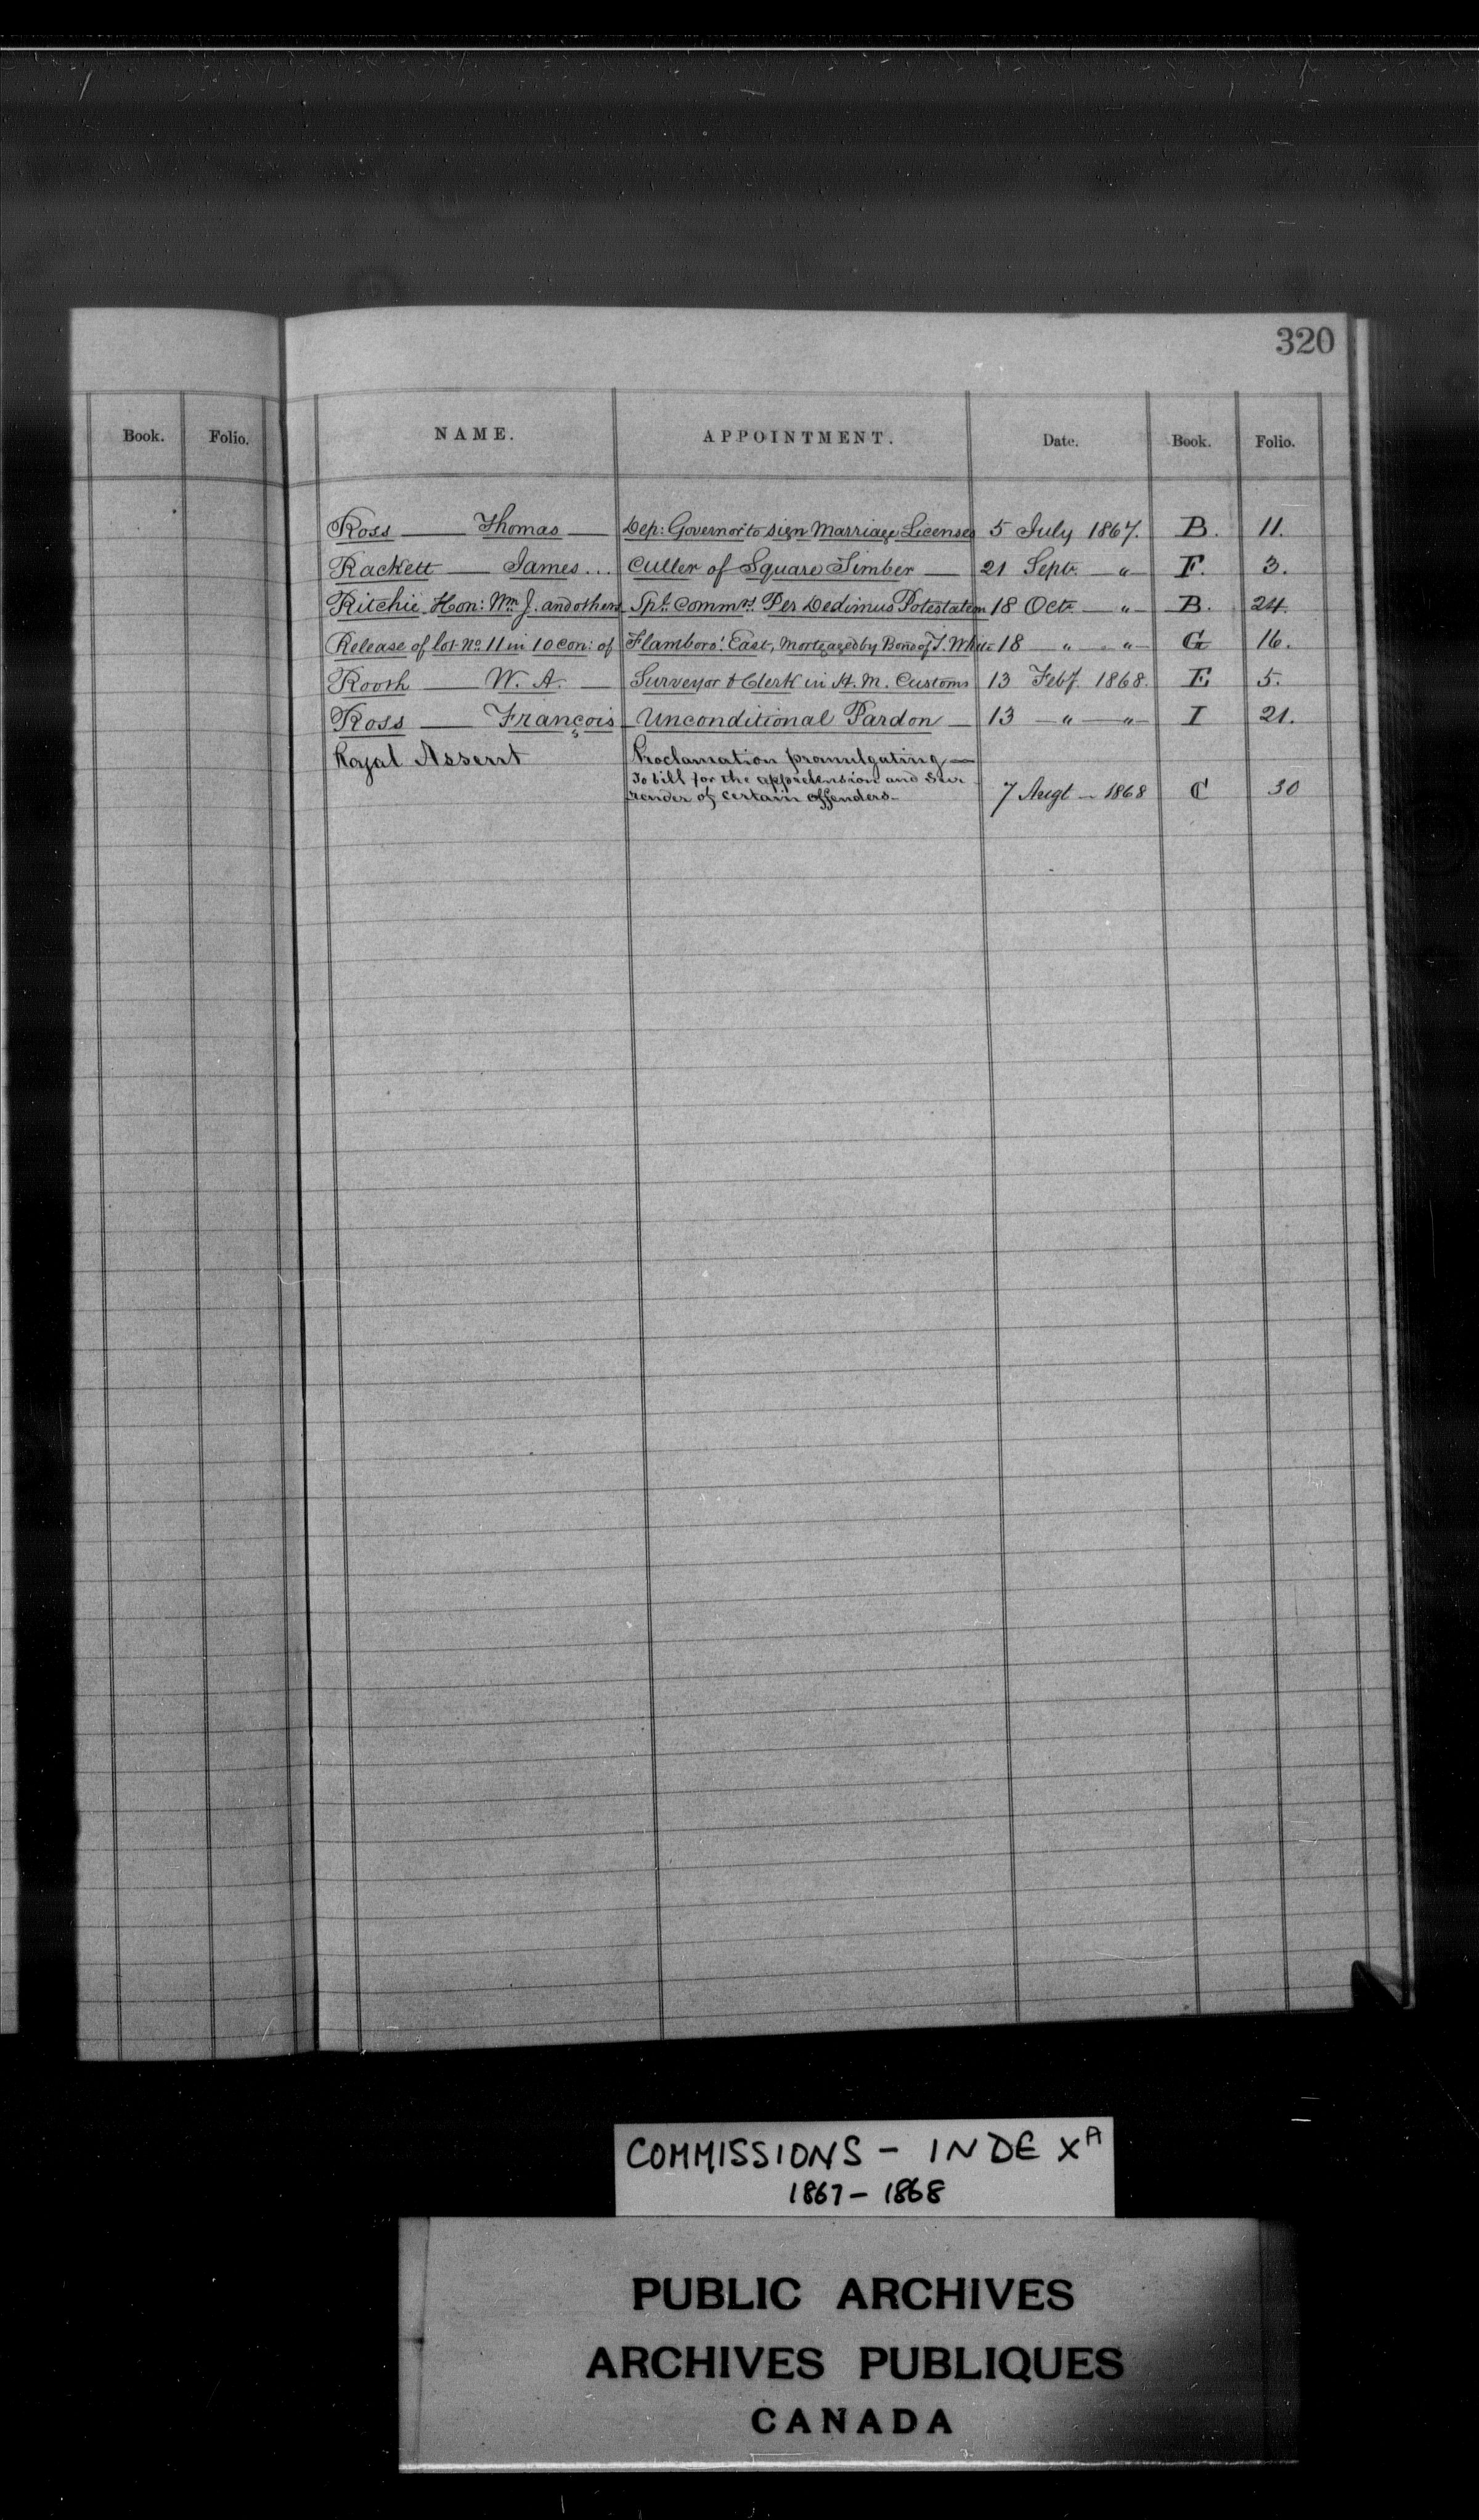 320
Book. Folio. NAME. APPOINTMENT. Date. Book. Folio.
Ross — Thomas — Dep: Governor to sign Marriage Licenses 5 July 1867. B. 11.
Rackett — James... Culler of Square Timber — 21 Septr. — " — F. 3.
Ritchie, Hon: Wm J. and others Spl. Commrs. Per Dedimus Potestatem 18 Octr — " — B. 24.
Release of lot No 11 in 10 con: of Flamboro' East, Mortgaged by Bond of T. White 18 — " — " — G 16.
Rooth — W. A. — Surveyor & Clerk in H. M. Customs 13 Feby. 1868. E 5.
Ross — François Unconditional Pardon — 13 — " — " — I 21.
Royal Assent Proclamation promulgating —
To bill for the apprehension and Sur
render of certain offenders — 7 Augt — 1868 C 30
COMMISSIONS - INDEX A
1867 - 1868
PUBLIC ARCHIVES
ARCHIVES PUBLIQUES
CANADA